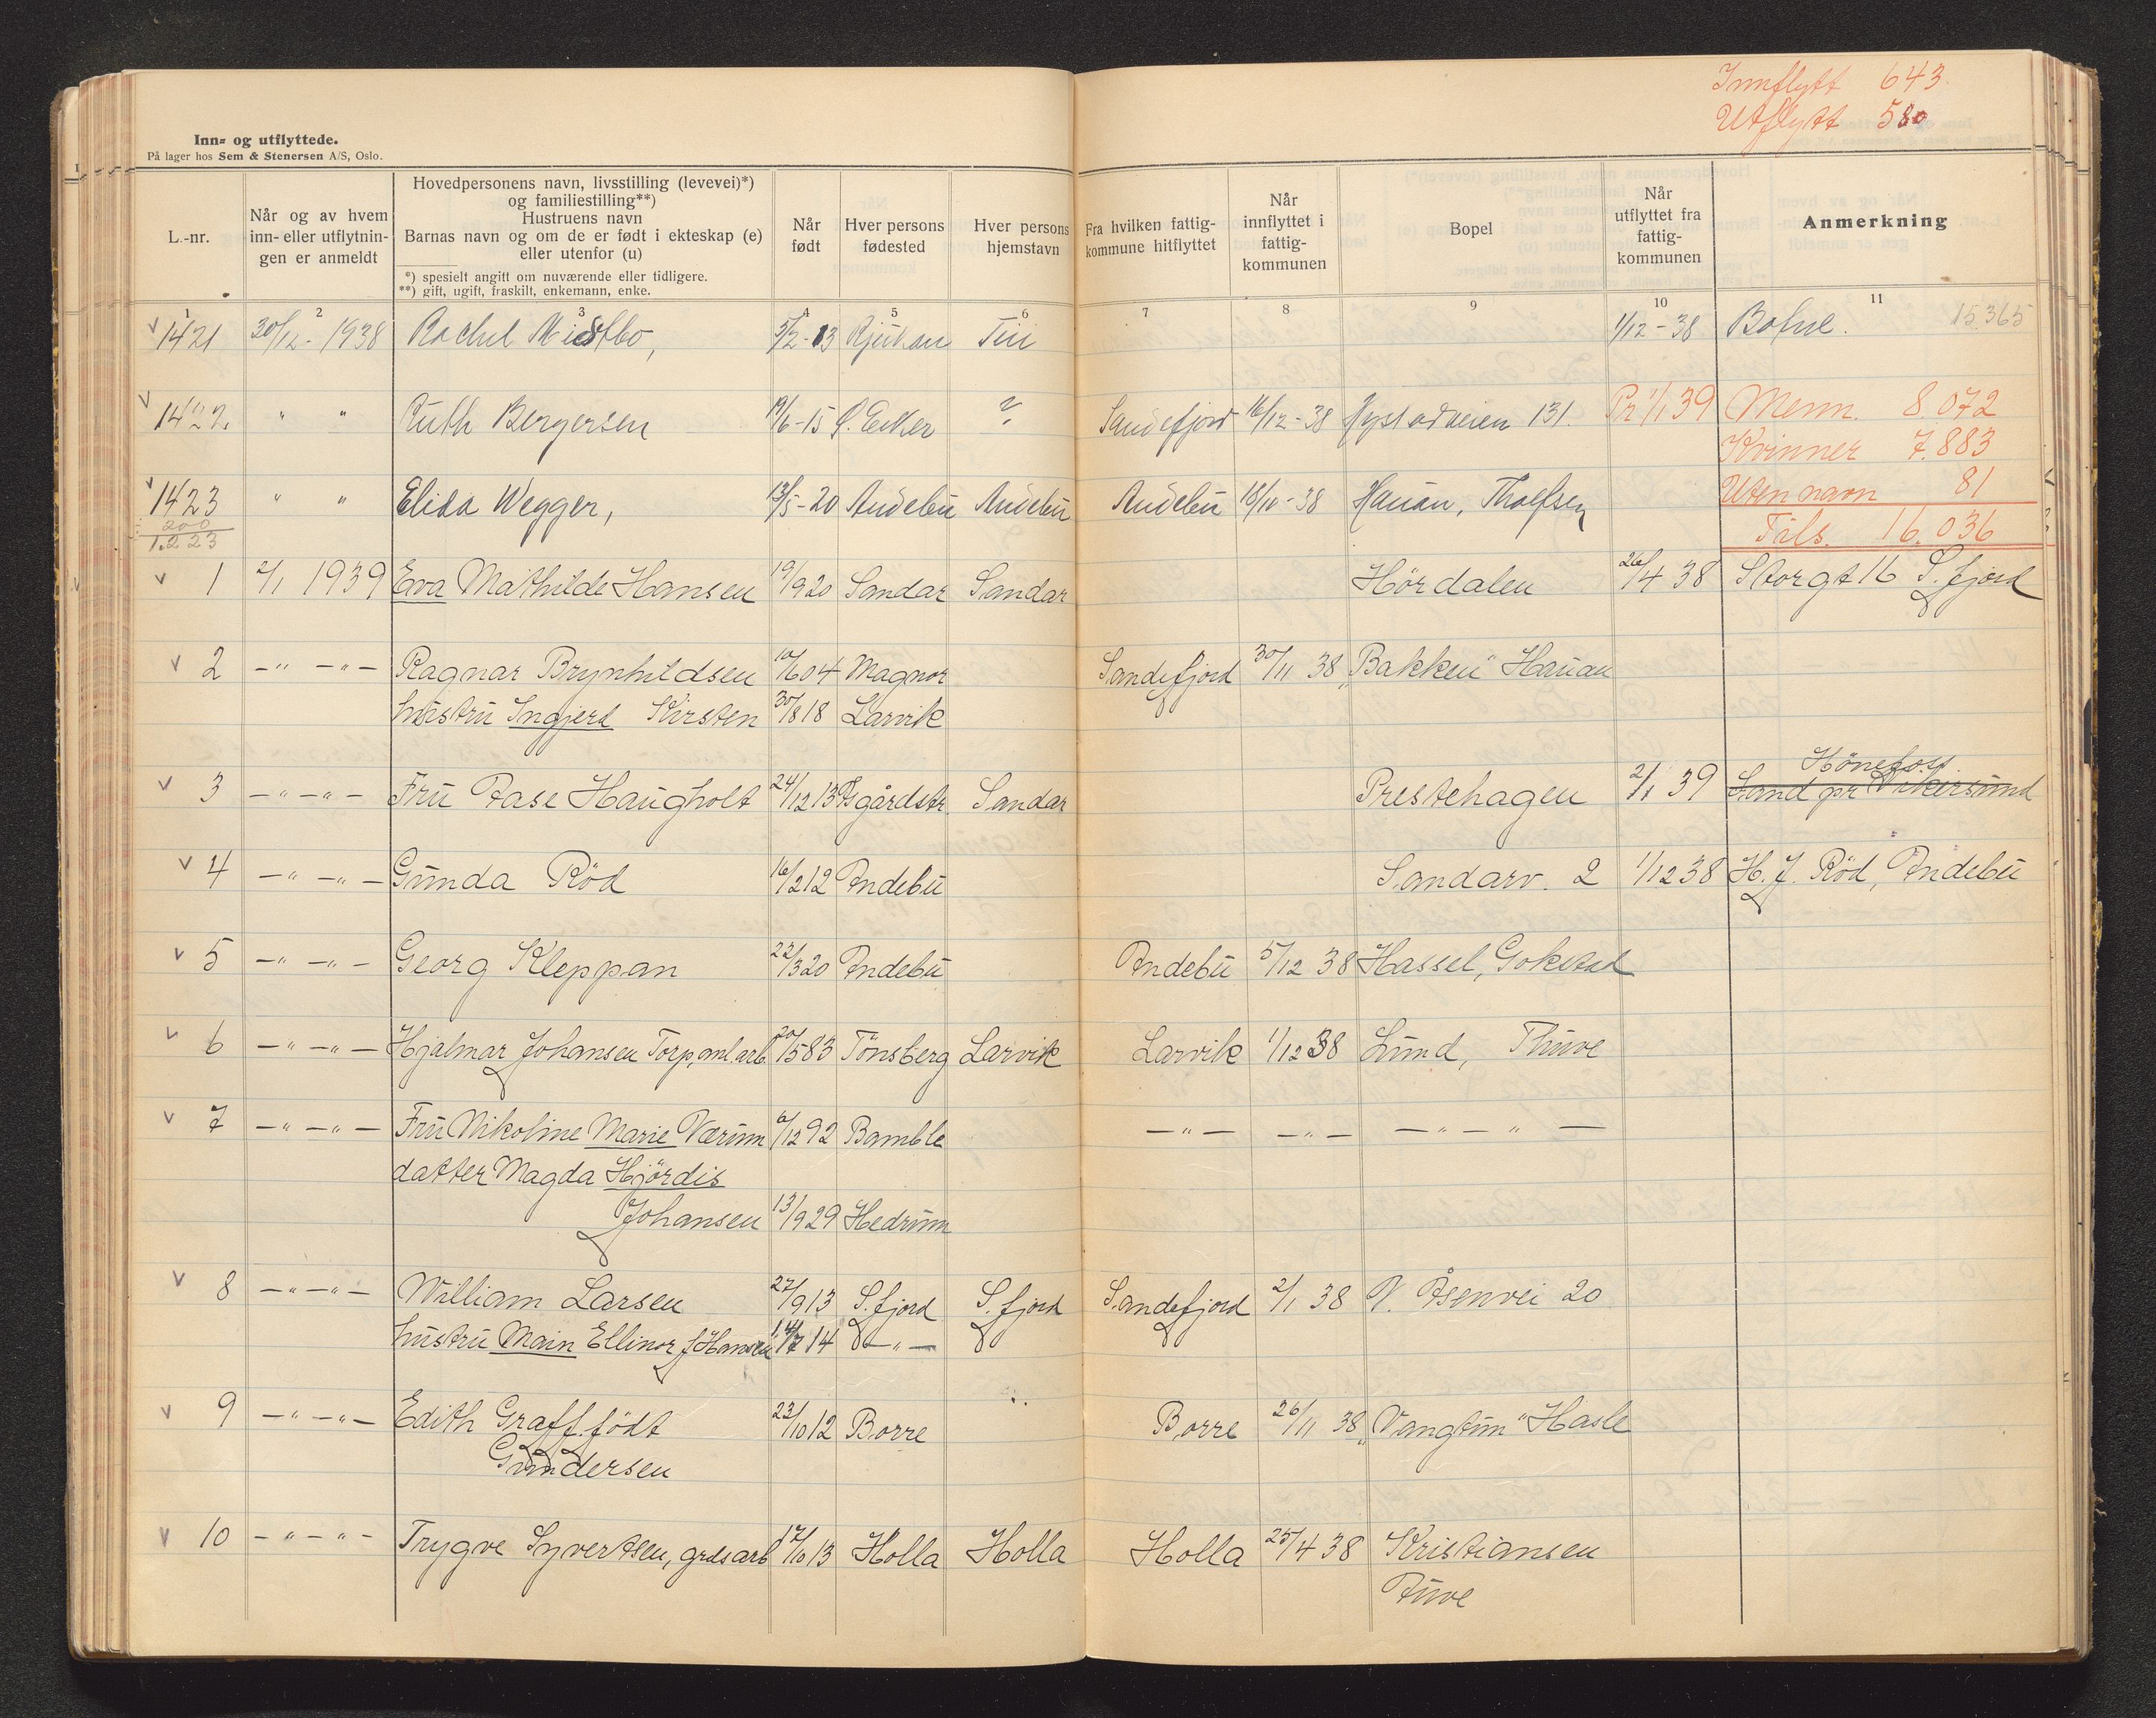 Innflytt 643
Utflytt 580
Inn- og utflyttede.
På lager hos Sem & Stenersen A/S, Oslo.
L.-nr.
Når og av hvem inn- eller utflytnin- gen er anmeldt
Hovedpersonens navn, livsstilling (levevei)*)
og familiestilling**)
Hustruens navn
Barnas navn og om de er født i ekteskap (e)
eller utenfor (u)
*) spesielt angitt om nuværende eller tidligere.
**) gift, ugift, fraskilt, enkemann, enke.
Når født
Hver persons fødested
Hver persons hjemstavn
Fra hvilken fattig- kommune hitflyttet
Når innflyttet i fattig- kommunen
Bopel
Når utflyttet fra fattig- kommunen
Anmerkning
1 2 3 4 5 6 7 8 9 10 11
1421 30/12 - 1938 Rachel 5/2-13 Rjukan 1/12-38 15.365
1422. " " Ruth Bergersen 19/6-15 ? Sandefjord 16/12-38 131. Pr 1/1 39 Menn. 8.072
Kvinner 7.883
1423 " " Elida Wegger, 13/5-20 Andebu Andebu Andebu 18/10-38 Hauan, Uten navn 81
200
1.223 Tils. 16.036
1 2/1 1939 Eva Mathilde Hansen 19/9 20 Sandar Sandar Hördalen 26/4 38 Storgt 16 S.fjord
2 -"- -"- Ragnar Brynhildsen 10/6 04 Magnor Sandefjord 30/11 38 „Bakken" Hauan
hustru Ingjerd Kirsten 30/8 18 Larvik
3 -"- -"- Fru Aase Haugholt 24/12 13 Åsgårdstr. Sandar Prestehagen 2/1 39 Hönefoss
Land pr Vikersund
4 -"- -"- Gunda Röd 16/2 12 Andebu Sandarv. 2 1/12 38 H. J. Röd, Andebu
5 -"- -"- Georg Kleppan 22/3 20 Andebu Andebu 5/12 38 Hassel, Gokstad
6 -"- -"- Hjalmar Johansen Torp, anl.arb. 20/5 83 Tönsberg Larvik Larvik 1/12 38 Lund, Thuve
7 -"- -"- Fru Nikoline Marie Værum 6/12 92 Bamble -"- -"- -"- "-
datter Magda Hjördis
Johansen 13/9 29 Hedrum
8 -"- -"- William Larsen 27/9 13 S.fjord S.fjord Sandefjord 2/1 38 V. Åsenvei 20
hustru Main Ellinor f Hansen 14/7 14 -"-
9 -"- -"- Edith Graff. födt 23/10 12 Borre Borre 26/11 38 „Vangtun" Hasle
Gundersen
10 -"- -"- Trygve Syvertsen, grdsarb 17/10 13 Holla Holla Holla 25/4 38 Kristiansen
Tuve